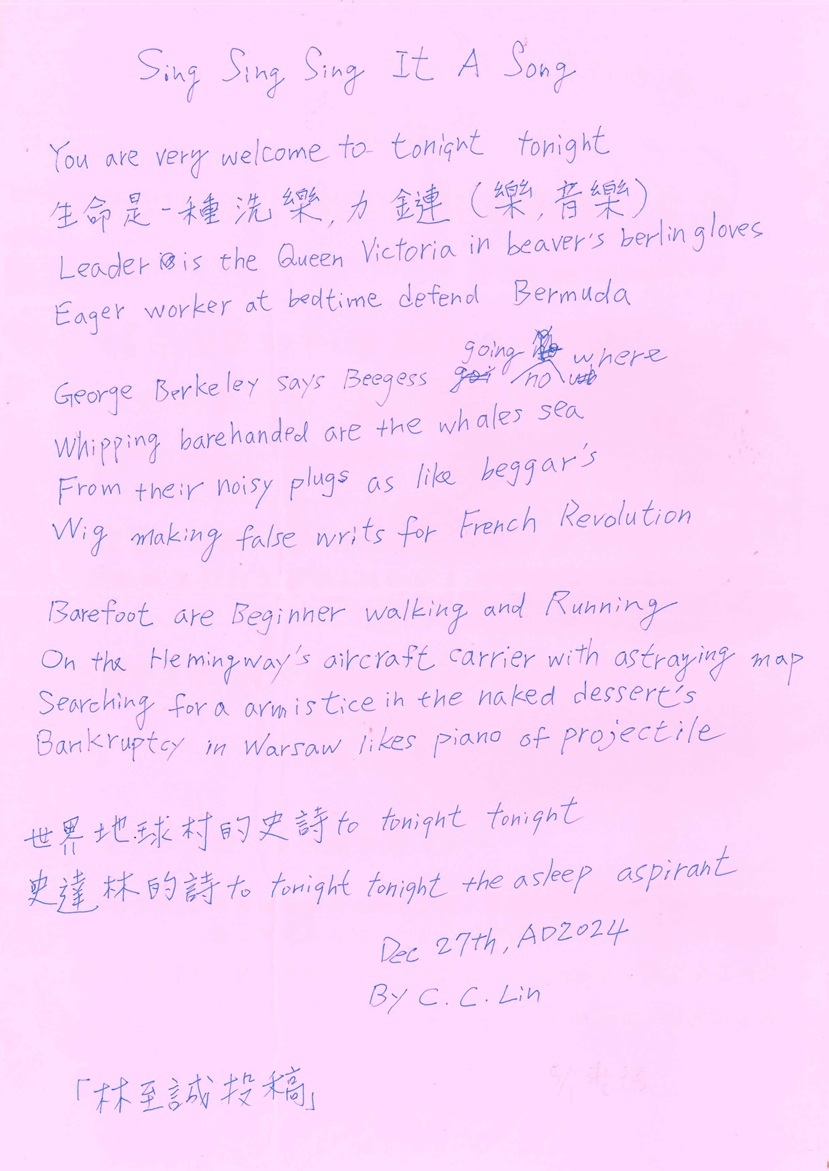 Sing Sing Sing It A Song
You are very welcome to tonight tonight
生命是一種洗樂,力鏈(樂,音樂)
Leader is the Queen Victoria in beaver's berlin gloves
Eager worker at bedtime defend Bermuda
George Berkeley says Beegess going no where
Whipping barehanded are the whales sea
From their noisy plugs as like beggar's
Wig making false writs for French Revolution
Barefoot are Beginner walking and Running
On the Hemingway's aircraft carrier with astraying map
Searching for a armistice in the naked dessert's
Bankruptcy in Warsaw likes piano of projectile
世界地球村的史詩to tonight tonight
史達林的詩to tonight tonight the asleep aspirant
Dec 27th, AD2024
By C. C. Lin
「林至誠投稿」